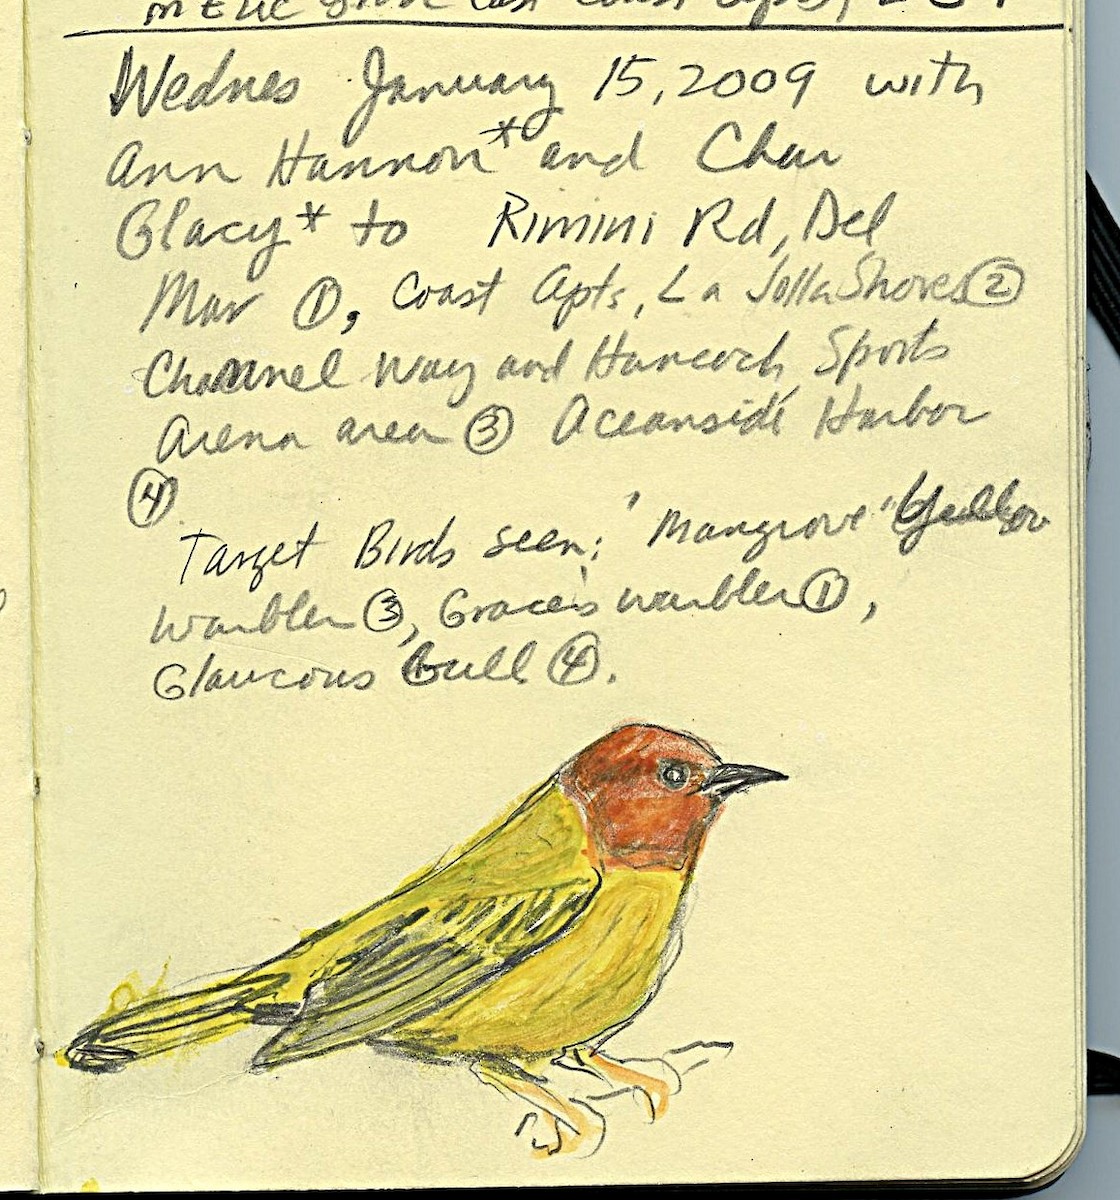 Wednes January 15, 2009 with
Ann Hannon* and Char
Glacy* to Rimini Rd, Del
Mar ①, Coast Apts, La Jolla Shores ②
Channel Way and Hancock, Sports
Arena area ③ Oceanside Harbor
④
Target Birds seen: "Mangrove" Yellow
warbler ③, Grace's warbler ①,
Glaucous Gull ④.